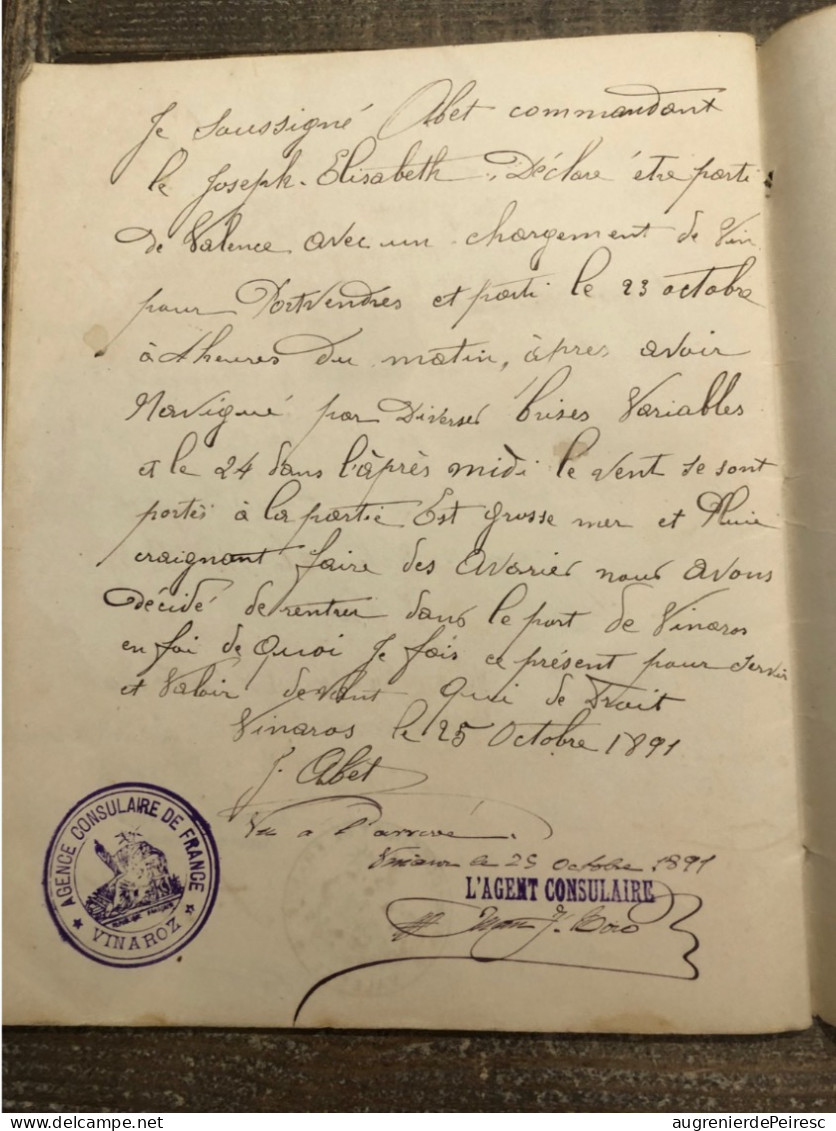 Je soussigné Abet commandant
le Joseph-Elisabeth, Déclare être parti
de Valence avec un chargement de Vin
pour Portvendres et parti le 23 octobre
à 4 heures du matin, àprès avoir
Navigué par Diverses brises Variables
et le 24 dans l'àprès midi le vent se sont
portés à la partie Est grosse mer et Pluie
craignant faire des avaries nous avons
Décidé de rentrer dans le port de Vinaros
en foi de Quoi Je fais ce présent pour servir
et Valoir devant Qui de Droit
Vinaros le 25 Octobre 1891
J. Abet
Vu a l'arrivé.
Vinaroz le 25 octobre 1891
L'AGENT CONSULAIRE
Juan J.
AGENCE CONSULAIRE DE FRANCE
VINAROZ
augrenierdePeiresc